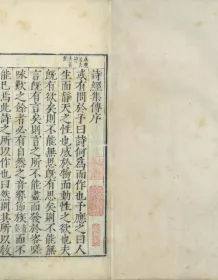 詩經集傳序
或有問於予曰詩何為而作也予應之曰人
生而靜天之性也感於物而動性之欲也夫
既有欲矣則不能無思既有思矣則不能無
言既有言矣則言之所不能盡而發於咨嗟
咏歎之餘者必有自然之音響節族而不
能已焉此詩之所以作也曰然則其所以教